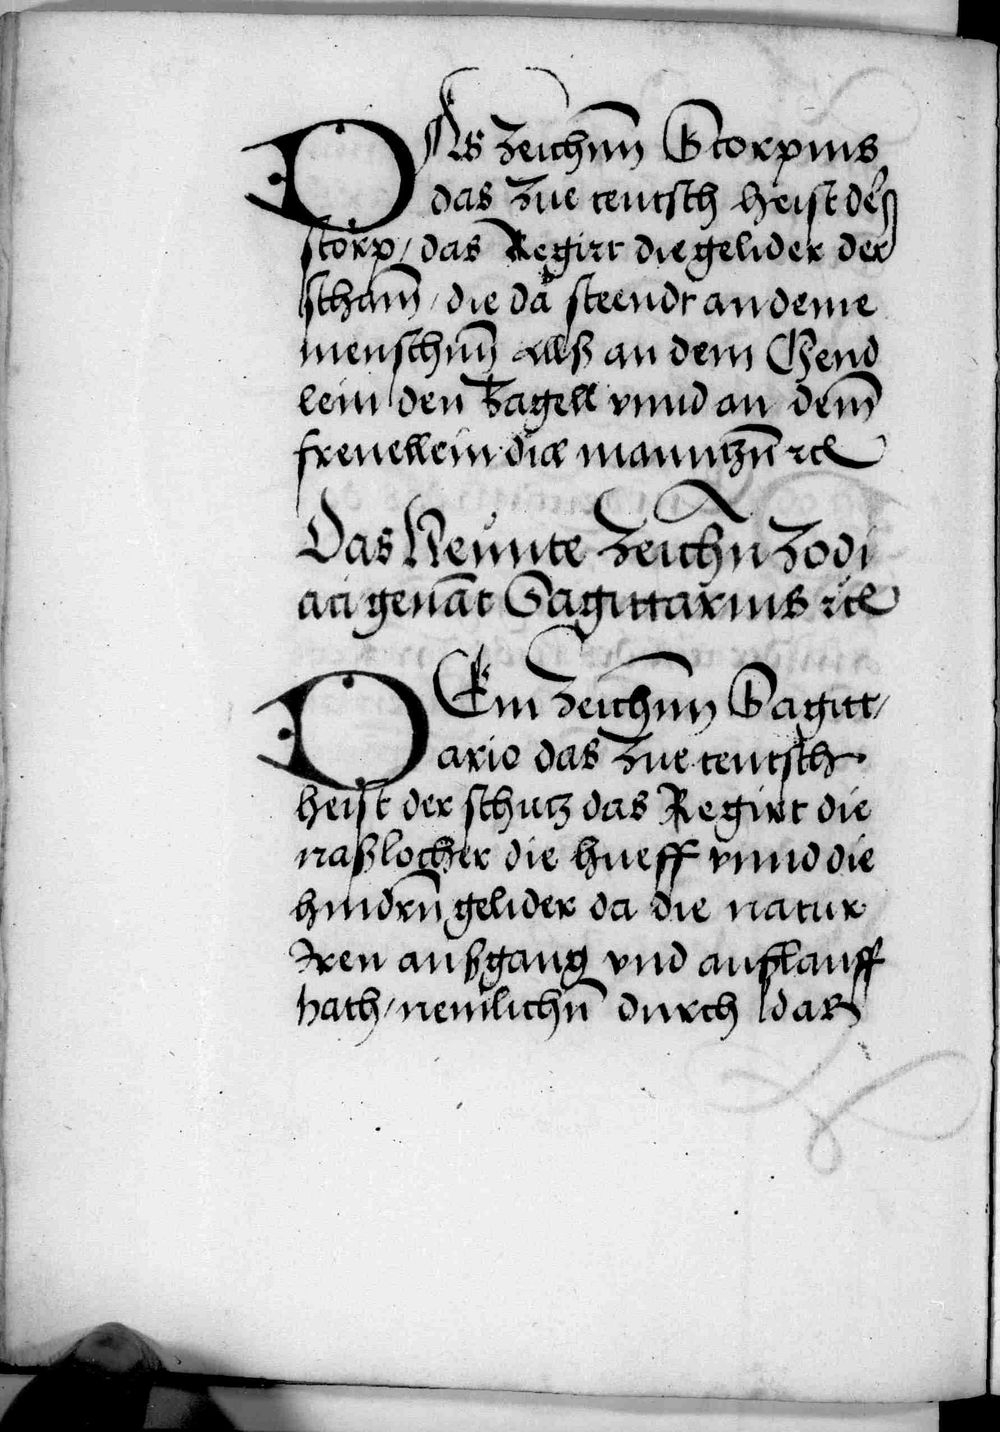 DAs Zeichnn Scorpius
das Zue teutsch heist der
storp / das Regirt die gelider der
scham / die da steendt an deme
menschnn alls an dem Gend
lein den Zagell vnnd an dem
freuellein die manntzn ꝛcͣ
Das Neunte Zeichn Zodi
aci genāt Sagittarius ꝛcͣ
DEm Zeichnn Sagitt/
ario das Zue teutsch
heist der schutz das Regirt die
naßlocher die hueff vnnd die
hindrn gelider da die natur
Iren außgang vnd außlauff
hath / nemlichn durch das